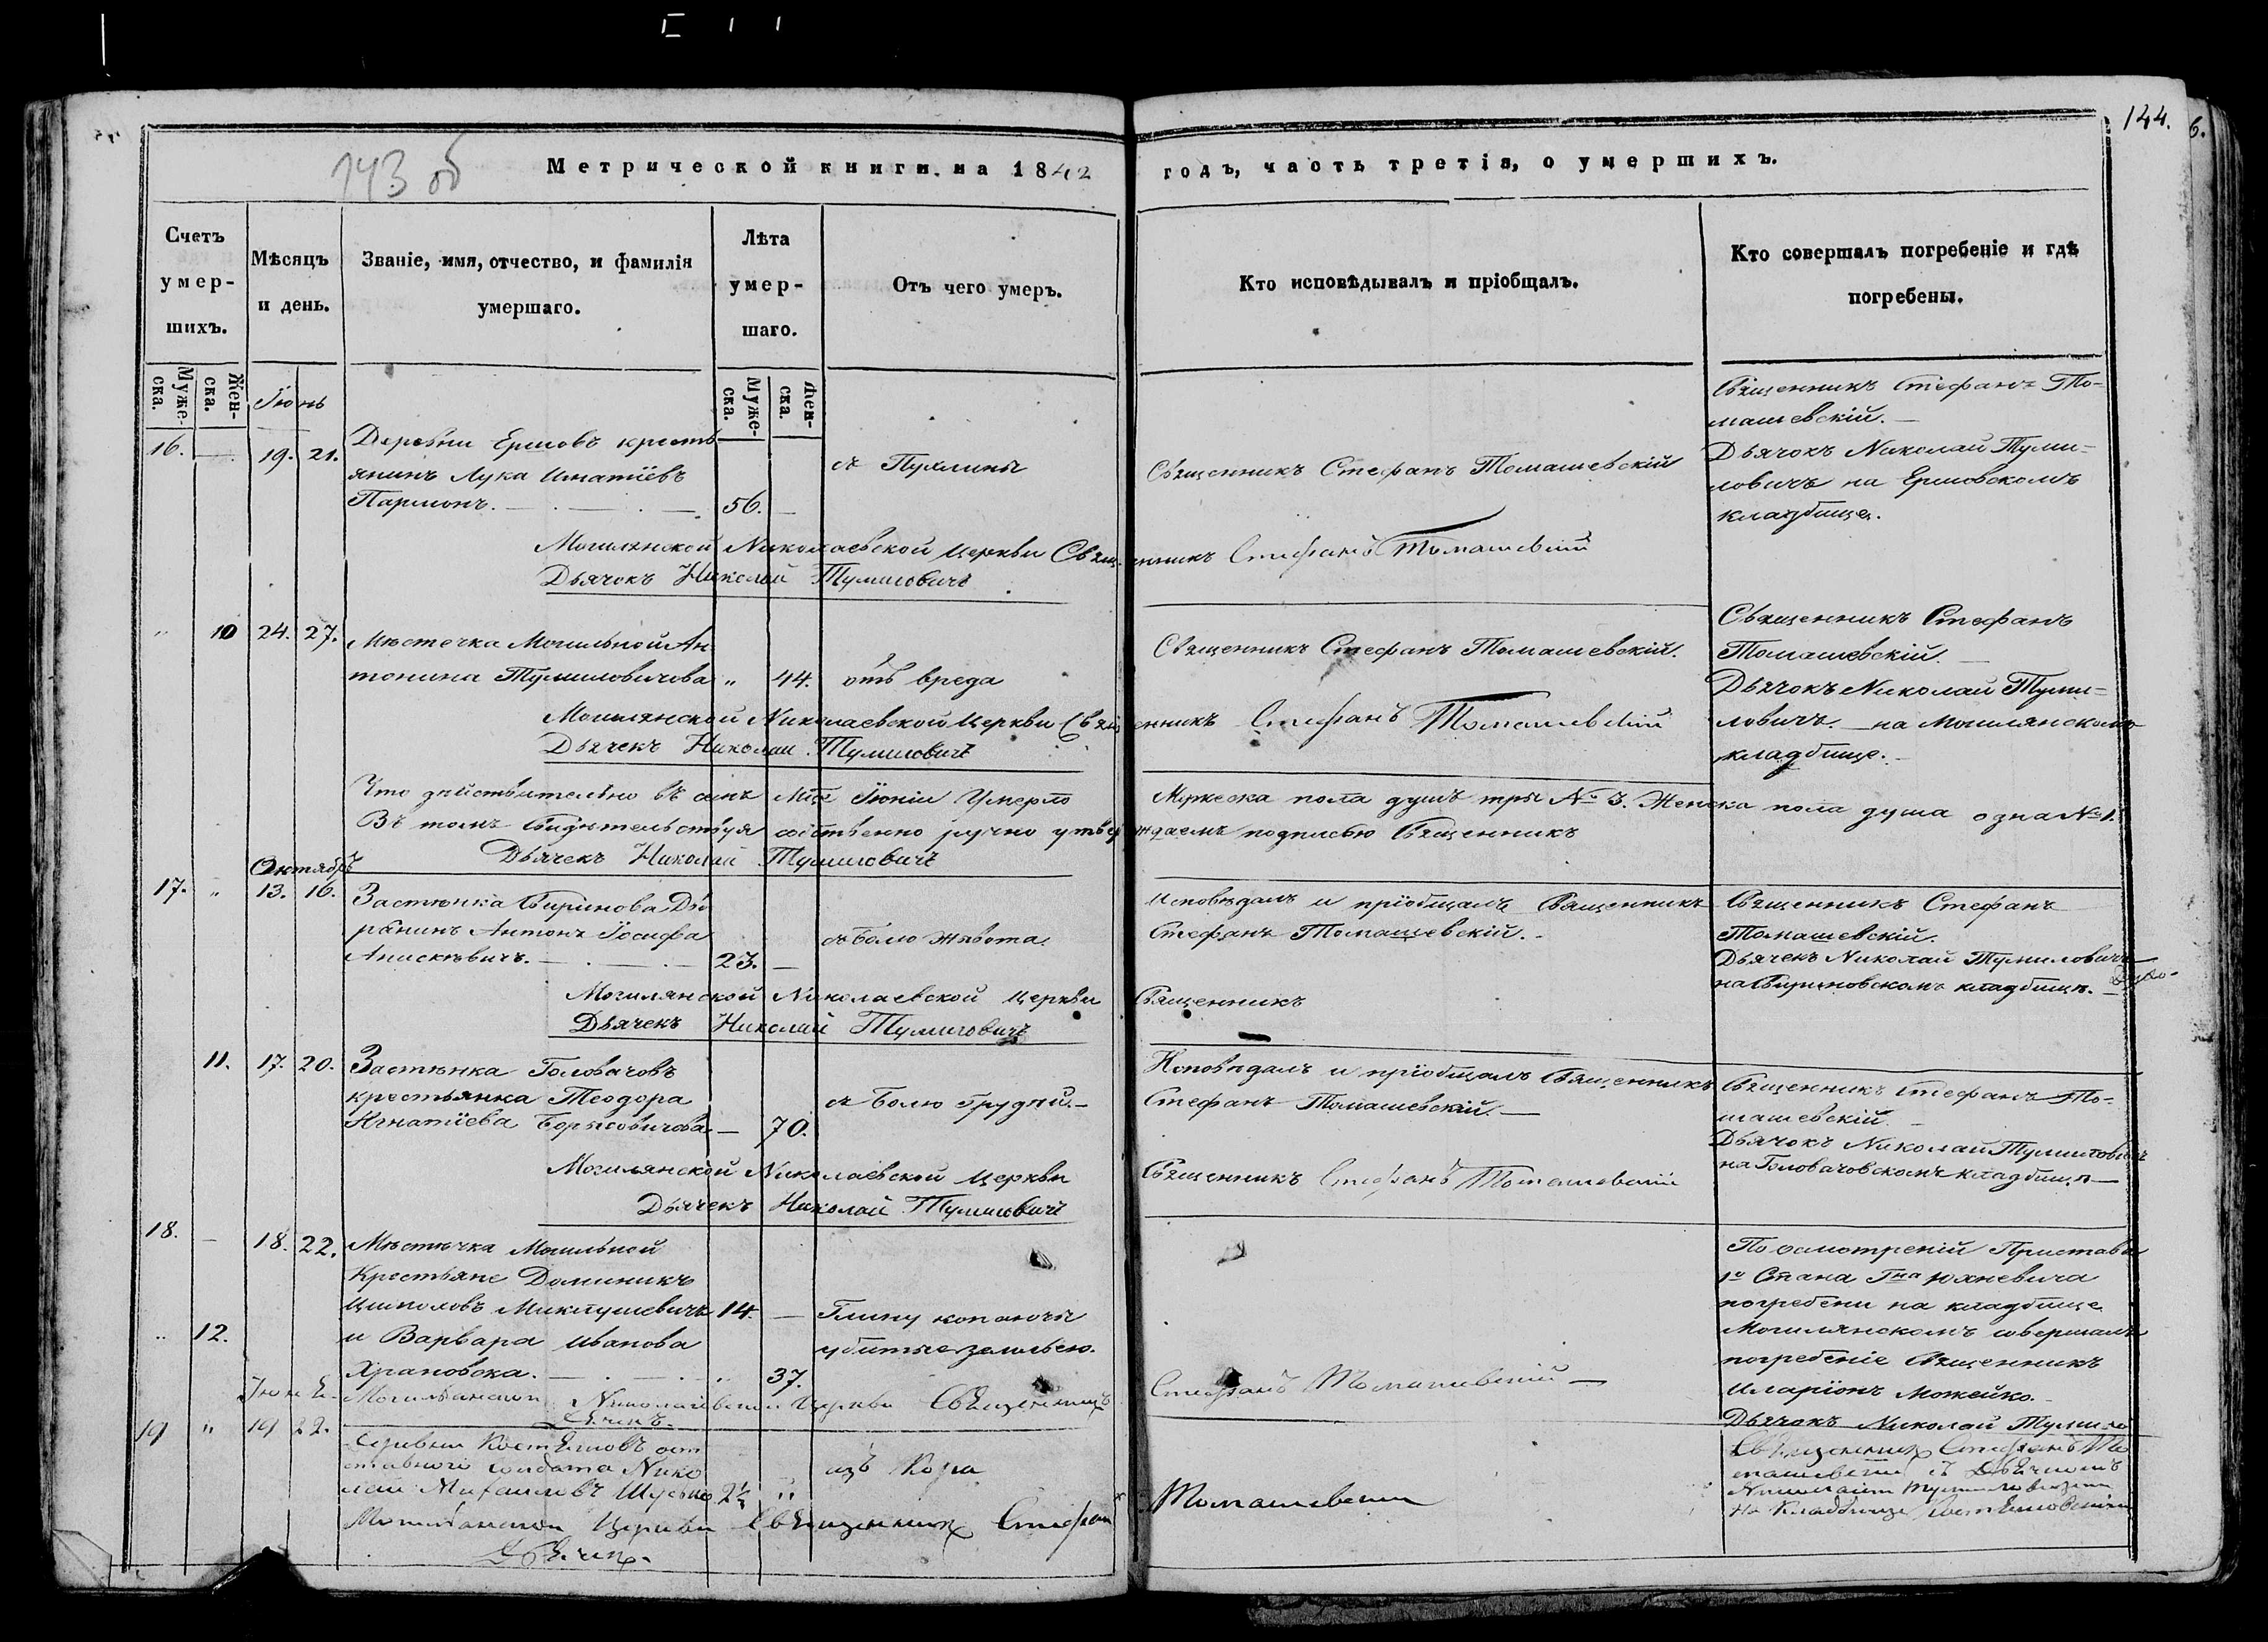 144.
6.
143 об
Метрической книги на 1842 годъ, часть третія, о умершихъ.
Счетъ умер-шихъ.
Мѣсяцъ и день.
Званіе, имя, отчество, и фамилія умершаго.
Лѣта умер-шаго.
Отъ чего умеръ.
Кто исповѣдывалъ и пріобщалъ.
Кто совершалъ погребеніе и гдѣ погребены.
Муже-ска.
Жен-ска.
Іюнь
Муже-ска.
Жен-ска.
16. — 19. 21.
Деревни Ермовъ кресть
янинъ Лука Игнатіевъ
Пармонъ. 56. —
съ Пухлины
Священникъ Стефанъ Томашевскій
Священникъ Стефанъ То-
машевскій.
Дьячокъ Николай Туми-
ловичъ на Ермовскомъ
кладбище.
Могилянской Николаевской Церкви Священникъ Стефанъ Томашевскій
Дьячокъ Николай Тумиловичъ
" 10 24. 27.
Мѣстечка Могильной Ан
тонина Тумиловичова " 44.
отъ вреда
Священникъ Стефанъ Томашевскій.
Священникъ Стефанъ
Томашевскій.
Дьячокъ Николай Туми-
ловичъ на Могилянскомъ
кладбище.
Могилянской Николаевской Церкви Священникъ Стефанъ Томашевскій
Дьячекъ Николай Тумиловичъ
Что дѣйствительно въ семъ Мцѣ Іюніи Умерло Мужеска пола душъ три № 3. Женска пола душа одна № 1.
Въ томъ свидѣтельствуя собственно ручно утверждаемъ подписью Священникъ
Дьячекъ Николай Тумиловичъ
Октябрь
17. " 13. 16.
Застѣнка Свиринова Дво
рянинъ Антонъ Іосифа
Анискѣвичъ. 23. —
съ Болю живота
Исповѣдалъ и пріобщалъ Священникъ
Стефанъ Томашевскій.
Священникъ Стефанъ
Томашевскій.
Дьячекъ Николай Тумиловичъ
на Свириновскомъ кладбищѣ.
Могилянской Николаевской Церкви Священникъ
Дьячекъ Николай Тумиловичъ
11. 17. 20.
Застѣнка Головачовъ
крестьянка Теодора
Игнатіева Борисовичова — 70.
съ Болю Грудни.
Исповѣдалъ и пріобщалъ Священникъ
Стефанъ Томашевскій.
Священникъ Стефанъ То-
машевскій
Дьячокъ Николай Тумиловичъ
на Головачовскомъ кладбищѣ
Могилянской Николаевской Церкви Священникъ Стефанъ Томашевскій
Дьячекъ Николай Тумиловичъ
18. — 18. 22.
Мѣстѣчка Могильной
Крестьяне Доминикъ
Микпушевичъ 14. —
" 12.
и Варвара Иванова
Храновска. 37.
Глину копаючи
убитые землею.
По осмотреній Пристава
1го Стана Гна Юхневича
погребени на кладбище
Могилянскомъ совершалъ
погребеніе Священникъ
Иларіонъ Можейко.
Дьячокъ Николай Тумило
Могилянской Николаевской Церкви Священникъ Стефанъ Томашевскій
19 " 19 22.
отставного солдата Нико
лай Михаиловъ 2½ "
изъ Кора
Священникъ Стефанъ То
машевскій съ
Николаемъ Тумиловичемъ
на Кладбище
Могилянской Церкви Священникъ Стефан Томашевскій